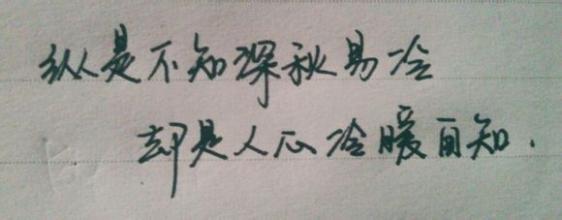 纵是不知深秋易冷
却是人心冷暖自知.